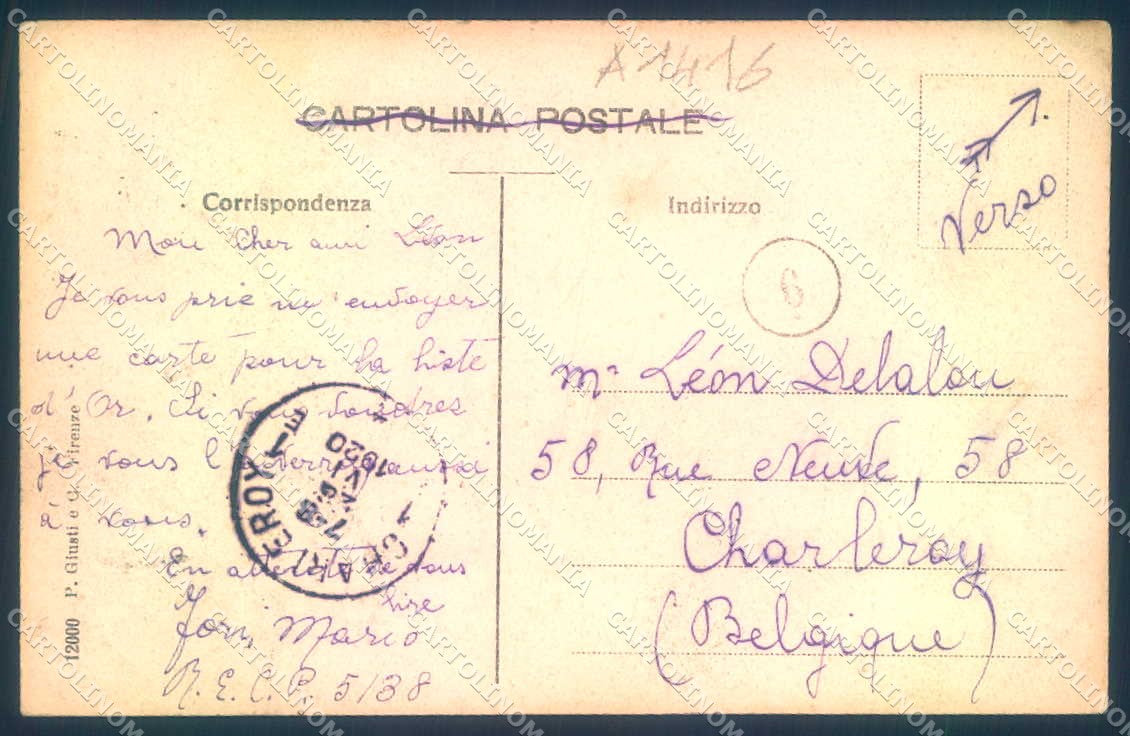 A1416
CARTOLINA POSTALE
Verso
Corrispondenza
Indirizzo
6
Mon Cher ami Léon
Je vous prie m'envoyer
une carte pour la liste
d'Or. Si vous voudres
je vous l'
à vous.
En attente de vous
lire
Mario
R.E.C.P. 5138
Mr Léon Delalou
58, Rue Neuve, 58
Charleroy
(Belgique)
CHARLEROY
1920
12000 P. Giusti e C. Firenze
CARTOLINOMANIA